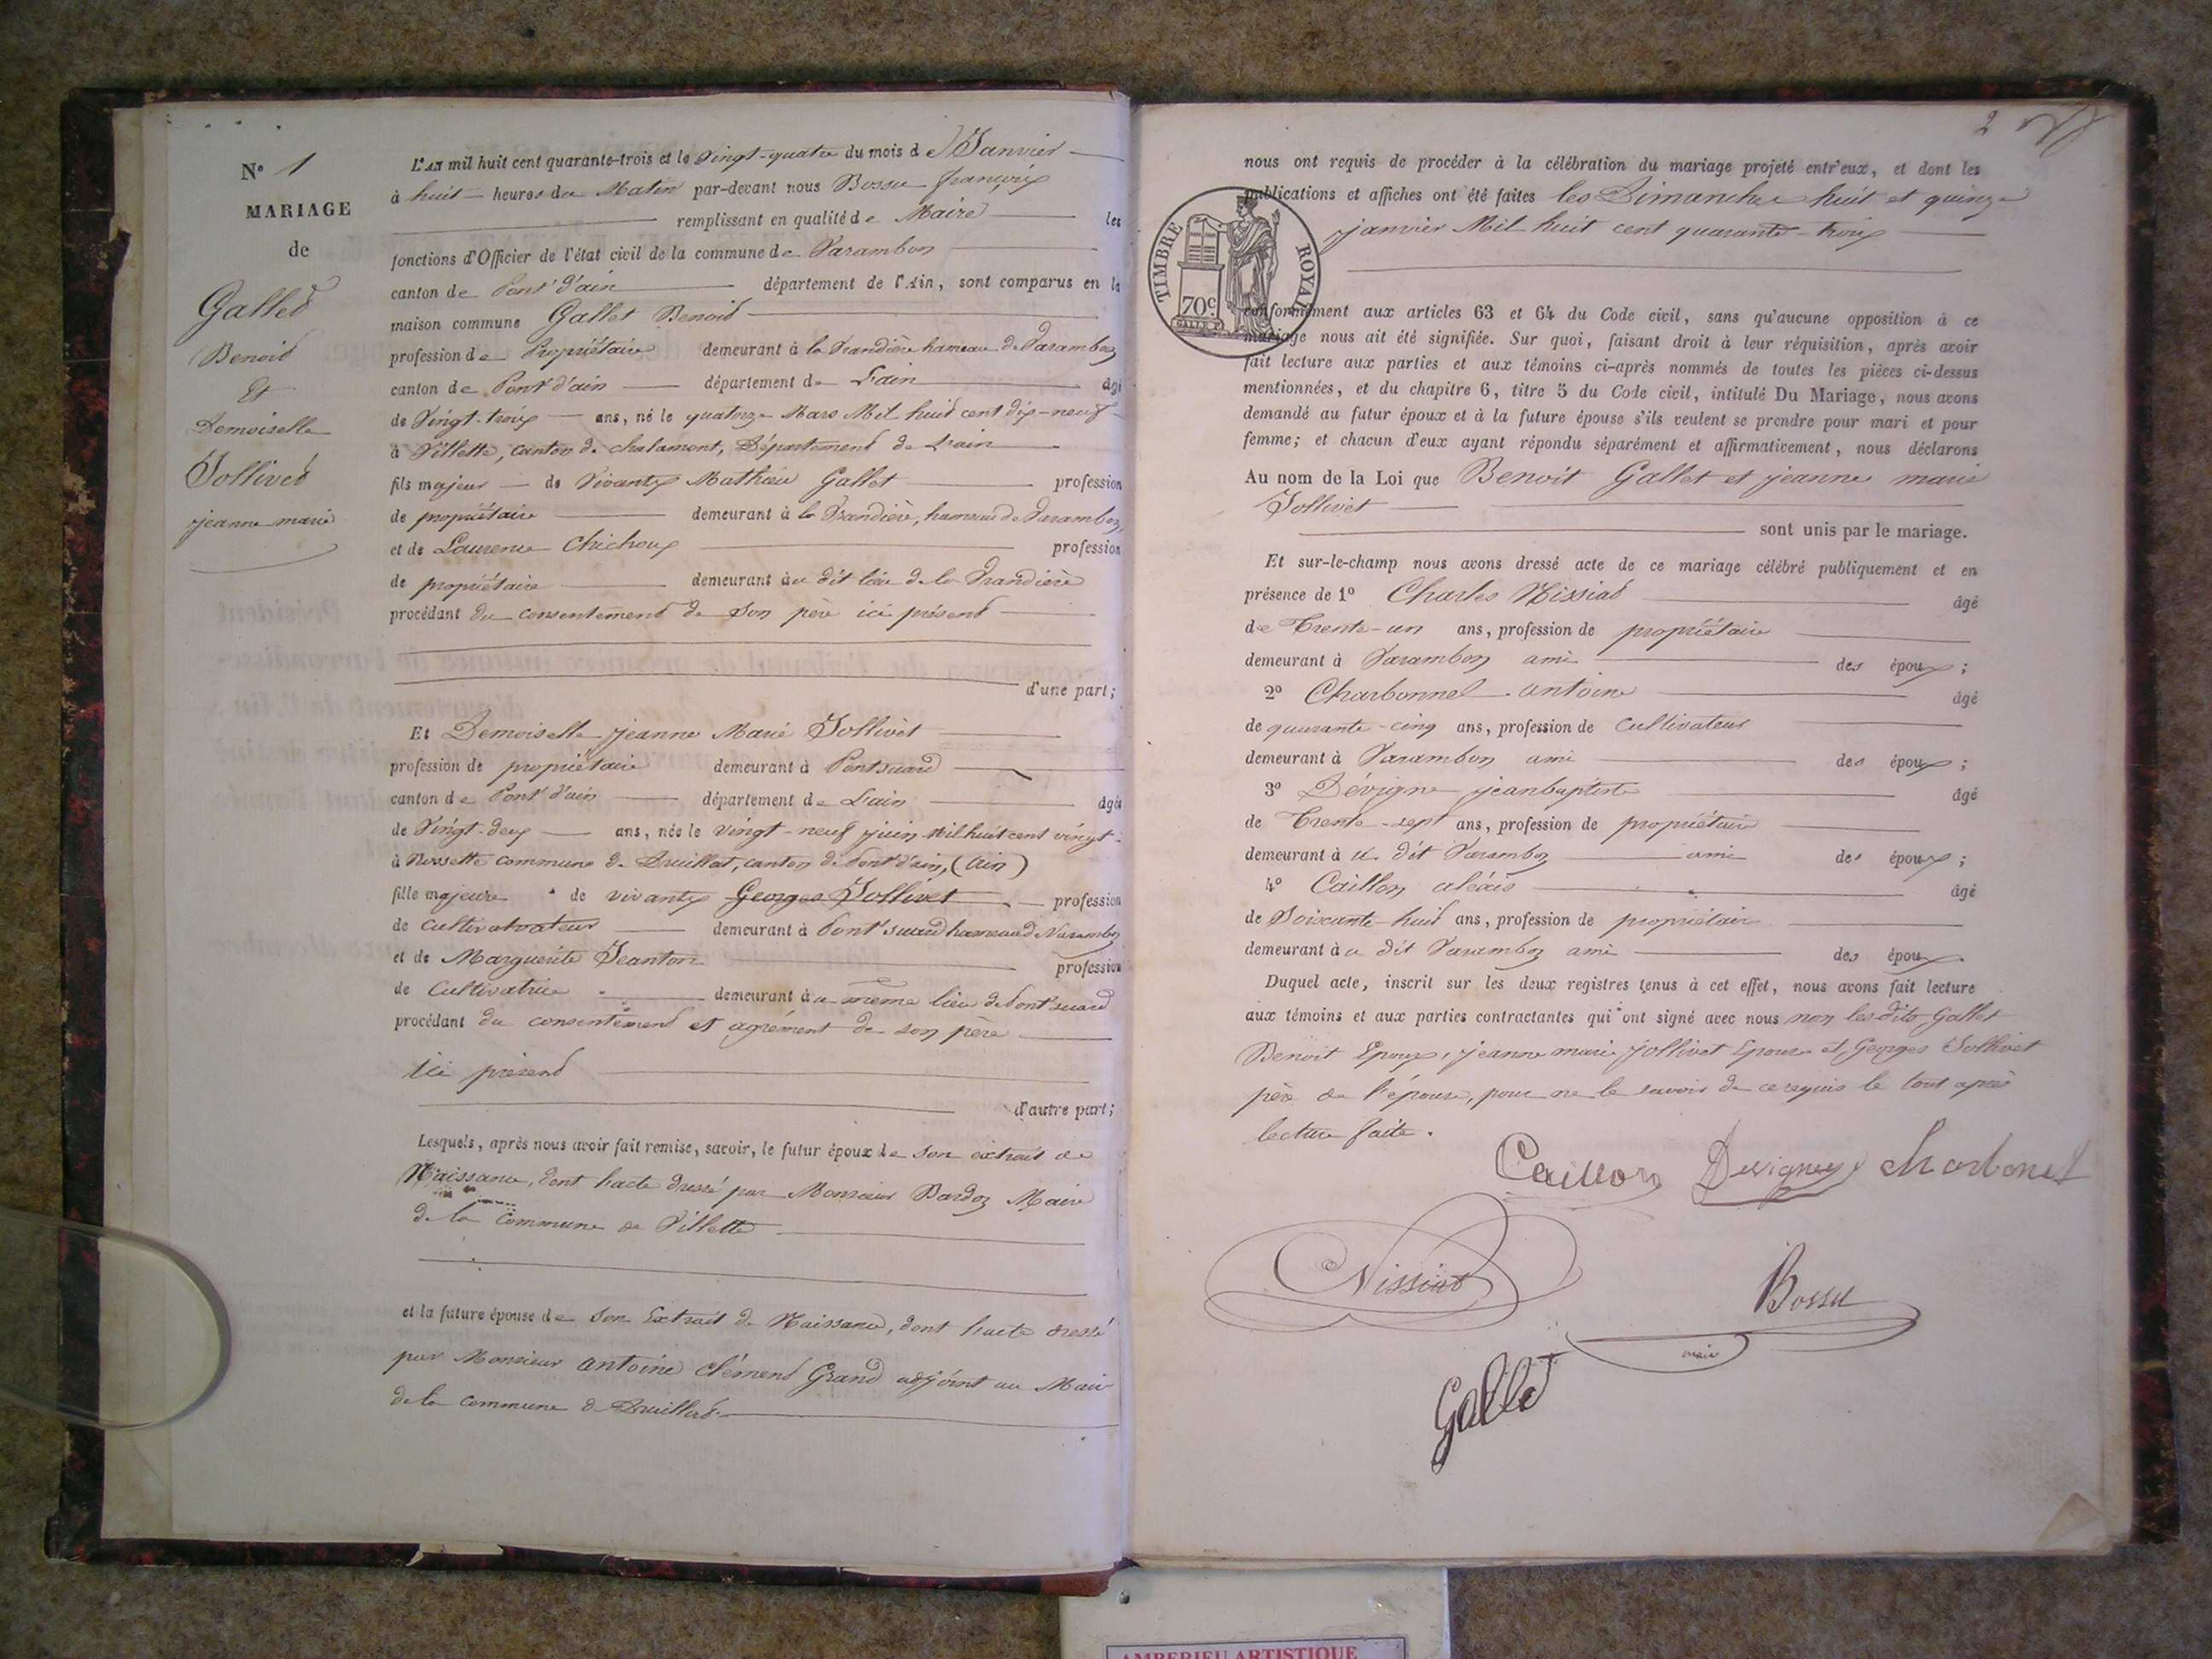 N.º 1
MARIAGE
de
Gallet
Benoit
Et
Demoiselle
Jollivet
jeanne marie
L'AN mil huit cent quarante-trois et le vingt-quatre du mois de Janvier
à huit heures du Matin par-devant nous Bossu françois
remplissant en qualité de Maire les
fonctions d'Officier de l'état civil de la commune de Varambon
canton de Pont d'ain département de l'Ain, sont comparus en la
maison commune Gallet Benoit
profession de Propriétaire demeurant à la hameau de Varambon
canton de Pont d'ain département de L'ain âgé
de Vingt-trois ans, né le quatorze Mars Mil huit cent dix-neuf
à Villette, canton de chalamont, Département de L'ain
fils majeur de Vivants Mathieu Gallet profession
de propriétaire demeurant à la hameau de Varambon,
et de Laurence Chichoux profession
de propriétaire demeurant au dit lieu de la
procédant du consentement de Son père ici présent
d'une part;
Et Demoiselle jeanne Marie Jollivet
profession de propriétaire demeurant à Pontsuard
canton de Pont d'ain département de L'ain âgée
de Vingt-deux ans, née le vingt-neuf juin Mil huit cent vingt
à Rossette commune de Druillat, canton de Pont d'ain, (Ain)
fille majeure de vivants Georges Jollivet profession
de cultivateur demeurant à Pont suard hameau de Varambon
et de Marguerite Jeanton profession
de Cultivatrice demeurant au même lieu de Pont suard
procédant du consentement et agrément de son père
ici présent
d'autre part;
Lesquels, après nous avoir fait remise, savoir, le futur époux de son extrait de
Naissance, dont l'acte dressé par Monsieur Bardoz Maire
de la commune de Villette
et la future épouse de Son Extrait de Naissance, dont l'acte dressé
par Monsieur antoine clément Grand adjoint au Maire
de la commune de Druillat.
2
nous ont requis de procéder à la célébration du mariage projeté entr'eux, et dont les
publications et affiches ont été faites les Dimanches huit et quinze
janvier Mil huit cent quarante-trois
TIMBRE ROYAL
70c
conformément aux articles 63 et 64 du Code civil, sans qu'aucune opposition à ce
mariage nous ait été signifiée. Sur quoi, faisant droit à leur réquisition, après avoir
fait lecture aux parties et aux témoins ci-après nommés de toutes les pièces ci-dessus
mentionnées, et du chapitre 6, titre 5 du Code civil, intitulé Du Mariage, nous avons
demandé au futur époux et à la future épouse s'ils veulent se prendre pour mari et pour
femme; et chacun d'eux ayant répondu séparément et affirmativement, nous déclarons
Au nom de la Loi que Benoit Gallet et jeanne marie
Jollivet
sont unis par le mariage.
Et sur-le-champ nous avons dressé acte de ce mariage célébré publiquement et en
présence de 1º Charles Nissiat âgé
de Trente-un ans, profession de propriétaire
demeurant à Varambon ami des époux;
2º Charbonnel antoine âgé
de quarante-cinq ans, profession de cultivateur
demeurant à Varambon ami des époux;
3º Dévigne jeanbaptiste âgé
de Trente-sept ans, profession de propriétaire
demeurant à u dit Varambon ami des époux;
4º Caillon aléxis âgé
de Soixante-huit ans, profession de propriétaire
demeurant à u dit Varambon ami des époux.
Duquel acte, inscrit sur les deux registres tenus à cet effet, nous avons fait lecture
aux témoins et aux parties contractantes qui ont signé avec nous non les dits Gallet
Benoit Epoux, jeanne marie Jollivet Epouse et Georges Jollivet
père de l'épouse, pour ne le savoir de ce requis le tout après
lecture faite.
Caillon Devigney Charbonet
Nissiat
Bossu
maire
Gallet
AMBERIEU ARTISTIQUE